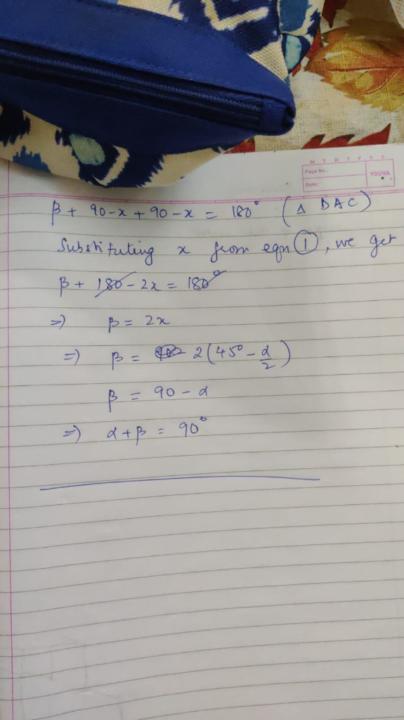 M T W T F S S
Page No.:
Date:
YOUVA
β + 90-x + 90-x = 180° (Δ DAC)
Substituting x from eqn ①, we get
β + 180 - 2x = 180°
⇒ β = 2x
⇒ β = 2(45° - α/2)
β = 90 - α
⇒ α+β = 90°